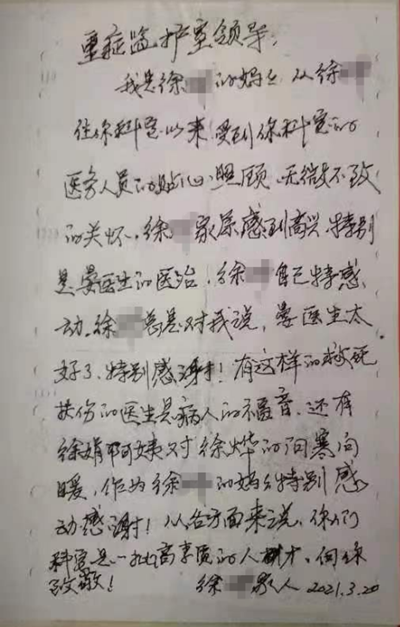 重症监护室领导:
我是徐 的妈妈从徐
住你科室以来,受到你科室的
医务人员的贴心照顾,无微不致
的关怀。徐 家属感到高兴特别
是晏医生的医治,徐 自己特感
动。徐 总是对我说,晏医生太
好了、特别感谢!有这样的救死
扶伤的医生是病人的福音。还有
徐娟阿姨对徐烨的问寒问
暖,作为徐 的妈妈特别感
动感谢!从各方面来说,你们
科室是一批高素质的人才,向你
致敬! 徐 家人 2021.3.20